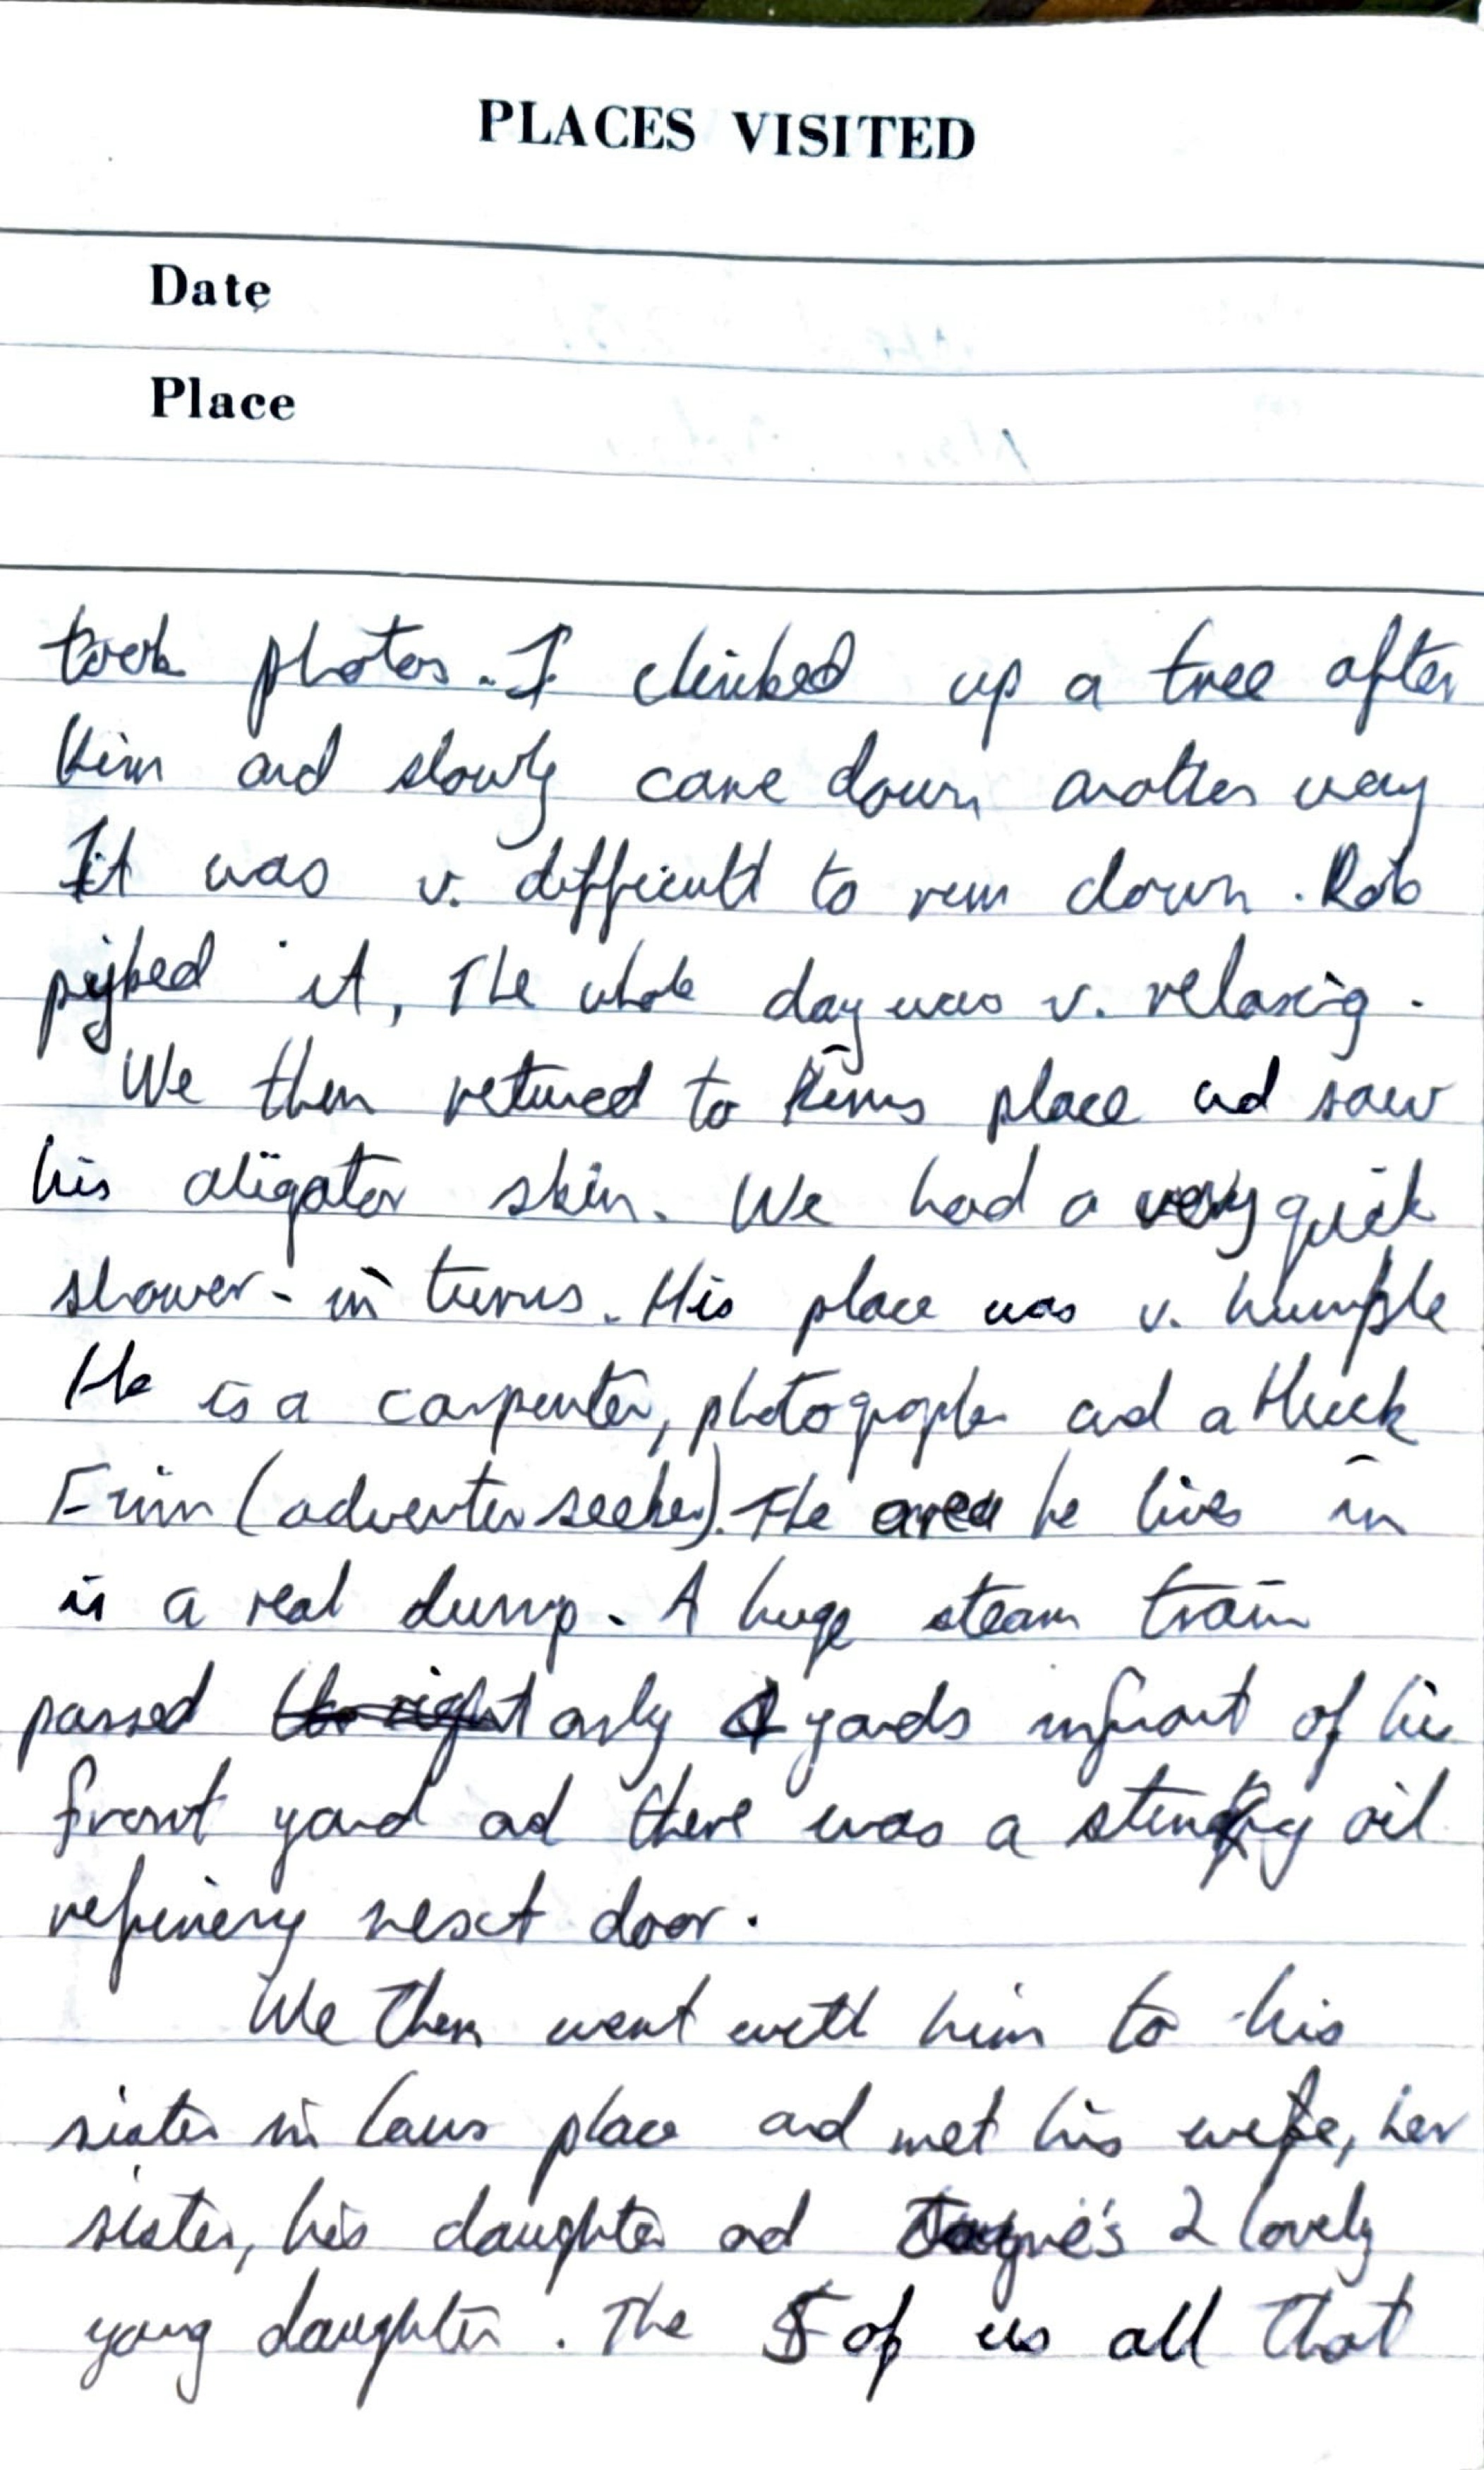 PLACES VISITED
Date
Place
took photos. I climbed up a tree after
Kim and slowly came down another way
It was v. difficult to run down. Rob
it, The whole day was v. relaxing.
We then returned to Kims place and saw
his aligator skin. We had a very quick
shower - in turns. His place was v. humble
He is a carpenter, photographer and a Huck
Finn (adventure seeker). The area he lives in
is a real dump. A huge steam train
passed only 4 yards infront of his
front yard and there was a stinky oil
refinery next door.
We then went with him to his
sister in laws place and met his wife, her
sister, his daughter and 2 lovely
young daughters. The 5 of us all that